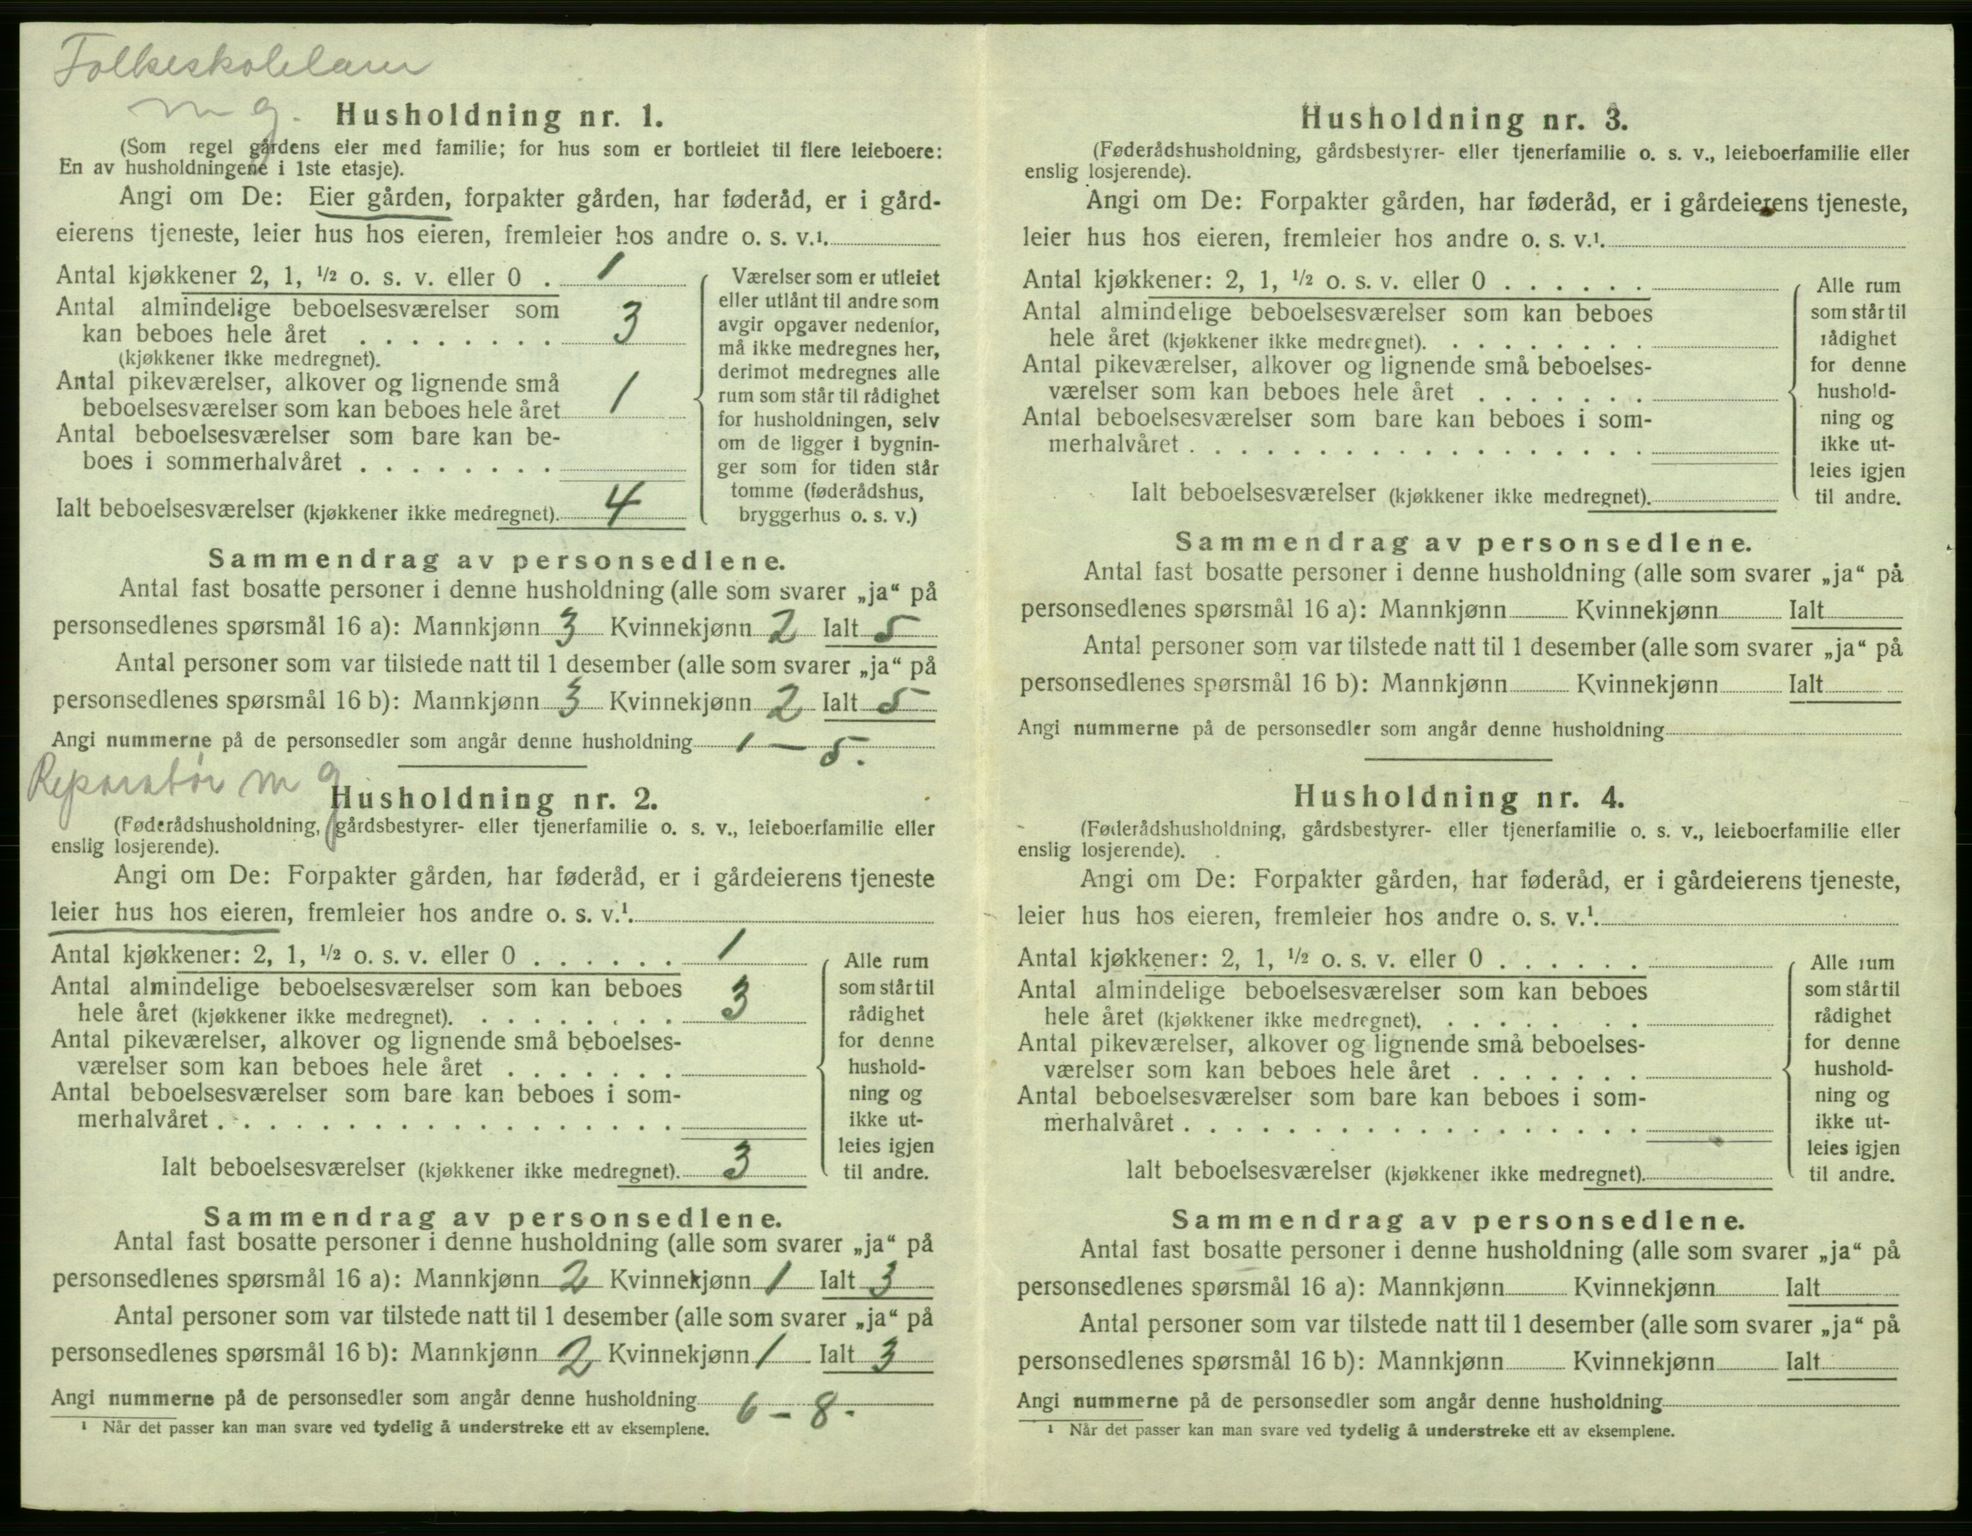 Folkeskolelærer
m g.
Husholdning nr. 1.
(Som regel gårdens eier med familie; for hus som er bortleiet til flere leieboere:
En av husholdningene i 1ste etasje).
Angi om De: Eier gården, forpakter gården, har føderåd, er i gård-
eierens tjeneste, leier hus hos eieren, fremleier hos andre o. s. v.¹.
Antal kjøkkener 2, 1, ½ o. s. v. eller 0 . 1
Antal almindelige beboelsesværelser som
kan beboes hele året . . . . . . . . 3
(kjøkkener ikke medregnet).
Antal pikeværelser, alkover og lignende små
beboelsesværelser som kan beboes hele året 1
Antal beboelsesværelser som bare kan be-
boes i sommerhalvåret . . . . . . . .
Ialt beboelsesværelser (kjøkkener ikke medregnet). 4
Værelser som er utleiet
eller utlånt til andre som
avgir opgaver nedenfor,
må ikke medregnes her,
derimot medregnes alle
rum som står til rådighet
for husholdningen, selv
om de ligger i bygnin-
ger som for tiden står
tomme (føderådshus,
bryggerhus o. s. v.)
Sammendrag av personsedlene.
Antal fast bosatte personer i denne husholdning (alle som svarer „ja“ på
personsedlenes spørsmål 16 a): Mannkjønn 3 Kvinnekjønn 2 Ialt 5
Antal personer som var tilstede natt til 1 desember (alle som svarer „ja“ på
personsedlenes spørsmål 16 b): Mannkjønn 3 Kvinnekjønn 2 Ialt 5
Angi nummerne på de personsedler som angår denne husholdning 1 — 5.
Reparatør m g
Husholdning nr. 2.
(Føderådshusholdning, gårdsbestyrer- eller tjenerfamilie o. s. v., leieboerfamilie eller
enslig losjerende).
Angi om De: Forpakter gården, har føderåd, er i gårdeierens tjeneste
leier hus hos eieren, fremleier hos andre o. s. v.¹.
Antal kjøkkener: 2, 1, ½ o. s. v. eller 0 . . . . . . 1
Antal almindelige beboelsesværelser som kan beboes
hele året (kjøkkener ikke medregnet). . . . . . . . . 3
Antal pikeværelser, alkover og lignende små beboelses-
værelser som kan beboes hele året . . . . . . .
Antal beboelsesværelser som bare kan beboes i som-
merhalvåret . . . . . . . . . . . . . . . . .
Ialt beboelsesværelser (kjøkkener ikke medregnet). 3
Alle rum
som står til
rådighet
for denne
hushold-
ning og
ikke ut-
leies igjen
til andre.
Sammendrag av personsedlene.
Antal fast bosatte personer i denne husholdning (alle som svarer „ja“ på
personsedlenes spørsmål 16 a): Mannkjønn 2 Kvinnekjønn 1 Ialt 3
Antal personer som var tilstede natt til 1 desember (alle som svarer „ja“ på
personsedlenes spørsmål 16 b): Mannkjønn 2 Kvinnekjønn 1 Ialt 3
Angi nummerne på de personsedler som angår denne husholdning 6 - 8.
¹ Når det passer kan man svare ved tydelig å understreke ett av eksemplene.
Husholdning nr. 3.
(Føderådshusholdning, gårdsbestyrer- eller tjenerfamilie o. s. v., leieboerfamilie eller
enslig losjerende).
Angi om De: Forpakter gården, har føderåd, er i gårdeierens tjeneste,
leier hus hos eieren, fremleier hos andre o. s. v.¹.
Antal kjøkkener: 2, 1, ½ o. s. v. eller 0 . . . . . .
Antal almindelige beboelsesværelser som kan beboes
hele året (kjøkkener ikke medregnet). . . . . . . . .
Antal pikeværelser, alkover og lignende små beboelses-
værelser som kan beboes hele året . . . . . . .
Antal beboelsesværelser som bare kan beboes i som-
merhalvåret . . . . . . . . . . . . . . . . . .
Ialt beboelsesværelser (kjøkkener ikke medregnet).
Alle rum
som står til
rådighet
for denne
hushold-
ning og
ikke ut-
leies igjen
til andre.
Sammendrag av personsedlene.
Antal fast bosatte personer i denne husholdning (alle som svarer „ja“ på
personsedlenes spørsmål 16 a): Mannkjønn Kvinnekjønn Ialt
Antal personer som var tilstede natt til 1 desember (alle som svarer „ja“ på
personsedlenes spørsmål 16 b): Mannkjønn Kvinnekjønn Ialt
Angi nummerne på de personsedler som angår denne husholdning
Husholdning nr. 4.
(Føderådshusholdning, gårdsbestyrer- eller tjenerfamilie o. s. v., leieboerfamilie eller
enslig losjerende).
Angi om De: Forpakter gården, har føderåd, er i gårdeierens tjeneste,
leier hus hos eieren, fremleier hos andre o. s. v.¹.
Antal kjøkkener: 2, 1, ½ o. s. v. eller 0 . . . . . .
Antal almindelige beboelsesværelser som kan beboes
hele året (kjøkkener ikke medregnet). . . . . . . .
Antal pikeværelser, alkover og lignende små beboelses-
værelser som kan beboes hele året . . . . . . .
Antal beboelsesværelser som bare kan beboes i som-
merhalvåret . . . . . . . . . . . . . . . . . .
Ialt beboelsesværelser (kjøkkener ikke medregnet).
Alle rum
som står til
rådighet
for denne
hushold-
ning og
ikke ut-
leies igjen
til andre.
Sammendrag av personsedlene.
Antal fast bosatte personer i denne husholdning (alle som svarer „ja“ på
personsedlenes spørsmål 16 a): Mannkjønn Kvinnekjønn Ialt
Antal personer som var tilstede natt til 1 desember (alle som svarer „ja“ på
personsedlenes spørsmål 16 b): Mannkjønn Kvinnekjønn Ialt
Angi nummerne på de personsedler som angår denne husholdning
¹ Når det passer kan man svare ved tydelig å understreke ett av eksemplene.